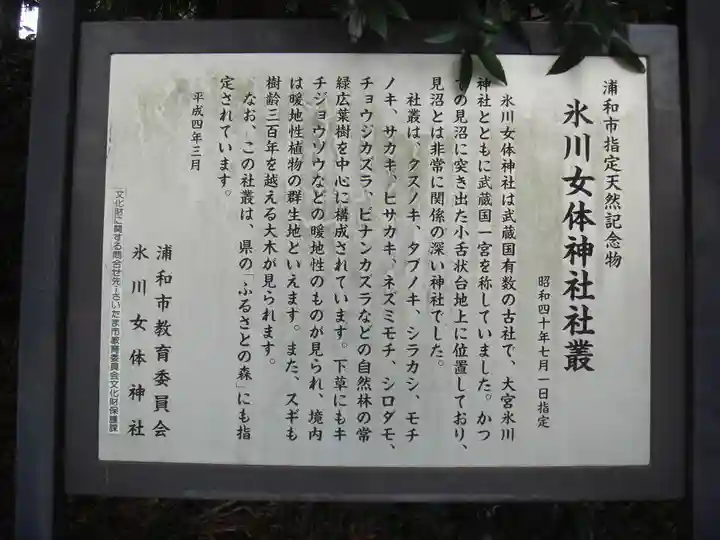 浦和市指定天然記念物
氷川女体神社社叢
昭和四十年七月一日指定
氷川女体神社は武蔵国有数の古社で、大宮氷川
神社とともに武蔵国一宮を称していました。かつ
ての見沼に突き出た小舌状台地上に位置しており、
見沼とは非常に関係の深い神社でした。
社叢は、クスノキ、タブノキ、シラカシ、モチ
ノキ、サカキ、ヒサカキ、ネズミモチ、シロダモ、
チョウジカズラ、ビナンカズラなどの自然林の常
緑広葉樹を中心に構成されています。下草にもキ
チジョウソウなどの暖地性のものが見られ、境内
は暖地性植物の群生地といえます。また、スギも
樹齢三百年を越える大木が見られます。
なお、この社叢は、県の「ふるさとの森」にも指
定されています。
平成四年三月
浦和市教育委員会
氷川女体神社
文化財に関する問合せ先－さいたま市教育委員会文化財保護課